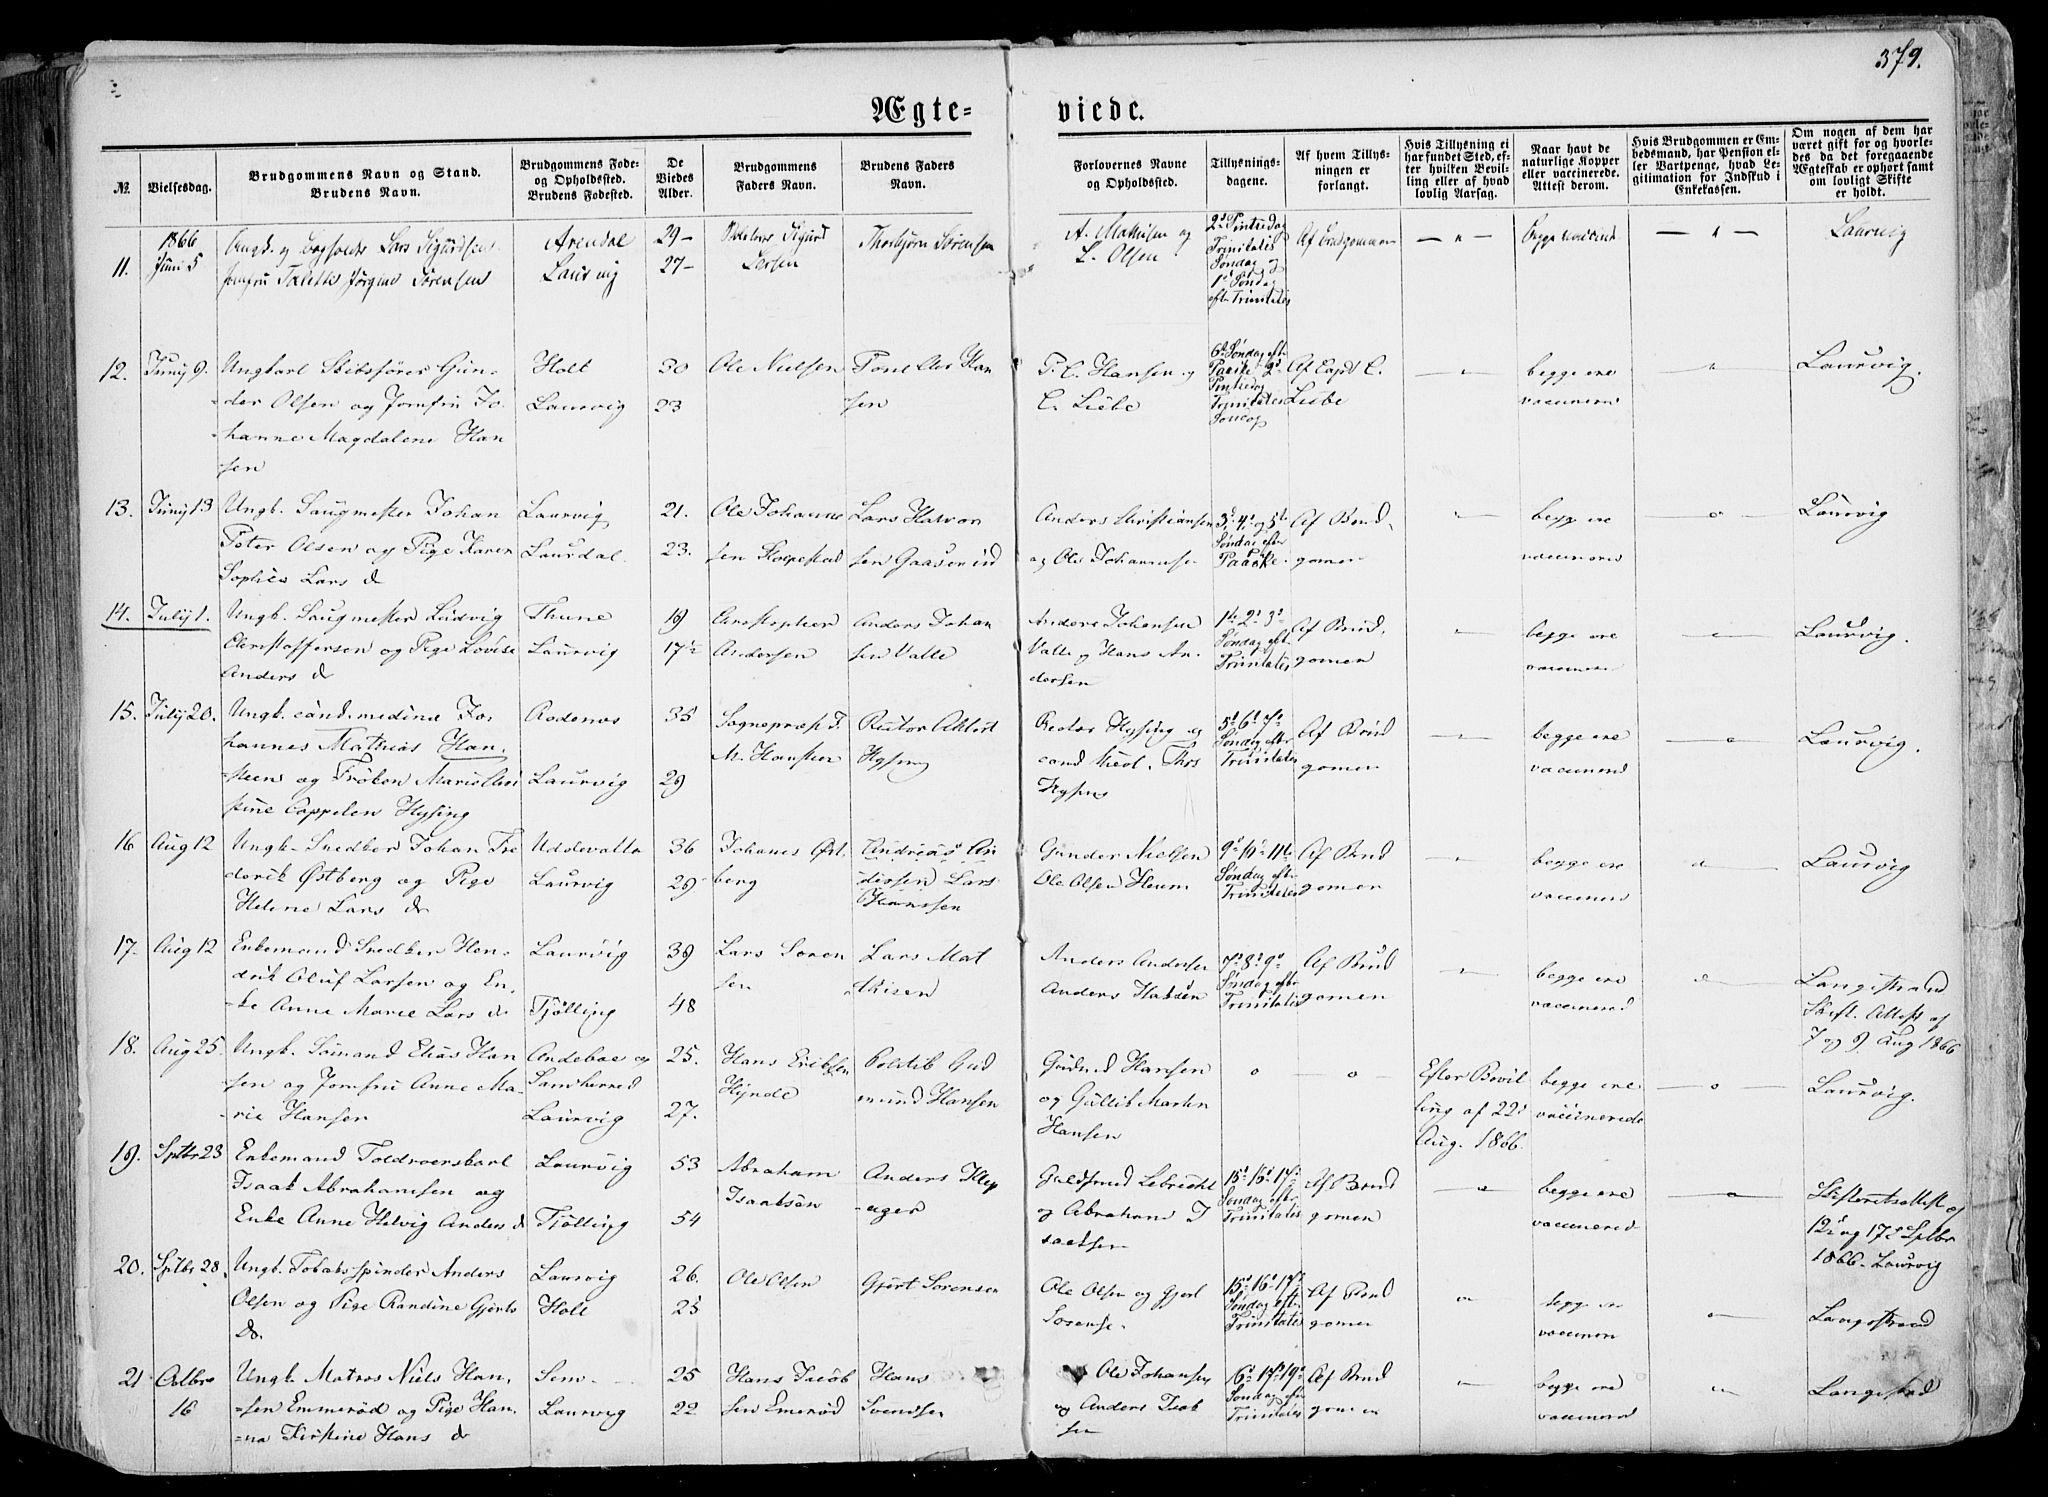 379.
Ægte- viede.
№.
Vielsesdag.
Brudgommens Navn og Stand.
Brudens Navn.
Brudgommens Fode-
og Opholdsted.
Brudens Fødested.
De
Viedes
Alder.
Brudgommens
Faders Navn.
Brudens Faders
Navn.
Forlovernes Navne
og Opholdssted.
Tillysnings-
dagene.
Af hvem Tillys-
ningen er
forlangt.
Hvis Tillysning ei
har fundet Sted, ef-
ter hvilken Bevil-
ling eller af hvad
lovlig Aarsag.
Naar havt de
naturlige Kopper
eller vaccinerede.
Attest derom.
Hvis Brudgommen er Em-
bedsmand, har Pension el-
ler Vartpenge, hvad Le-
gitimation for Indskud i
Enkekassen.
Om nogen af dem har
været gift for og hvorle-
des da det foregaaende
Ægteskab er ophort samt
om lovligt Skifte
er holdt.
1866
11. Juni 5
Ungk. og Lars Sigurdsen
Jomfru Jørgine Sørensen
Arendal
Laurvig
29-
27-
Sigurd
Larsen
Thorbjörn Sørensen
A. Mathisen og
L. Olsen
2d Pintsedag
Trinitatis
Søndag og
1ste Søndag
eft. Trinitatis
Af Brudgommen
Begge vaccinerede
Laurvig
12. Juny 9.
Ungkarl Skibsfører Gun-
der Olsen og Jomfru Jo-
hanne Magdalene Han
sen
Holt
Laurvig
30
23
Ole Nielsen
Tønnes Chr Han
sen
P. C. Hansen og
C. Liebe
6te Søndag eft
Paaske 2d
Pintsedag
Trinitatis
Søndag
Af Capt C.
Liebe
begge ere
vaccinered
Laurvig.
13. Juny 13
Ungk. Saugmester Johan
Peter Olsen og Pige Karen
Sophie Lars d
Laurvig
Laurdal.
21.
23.
Ole Johanne
sen
Lars Halvor
sen Gaaserud
Anders Christiansen
og Ole Johannesse
3d, 4d og 5te
Søndag efter
Paaske.
Af Brud-
gomen
begg ere
vaccinered
Laurvig
14. July 1.
Ungk. Saugmester Ludvig
Christoffersen og Pige Lovise
Anders d
Thune
Laurvig
19
17½
Christopher
Andersen
Anders Johan
sen Valle
Anders Johansen
Valle og Hans An-
dersen
1ste 2d 3d
Søndag eft.
Trinitatis
Af Brud-
gomen
begge ere
vaccinered
Laurvig.
15. July 20.
Ungk. cand. medicina Jo-
hannes Mathias Han-
steen og Frøken Marie Chri
stine Cappelen Hysing
Rodenes
Laurvig
35
29
Sognepræst J.
M. Hansteen
Rector
Hysing
Rector Hysing og
cand theol. Ths
Hysing
5te 6te 7de
Søndag efter
Trinitatis
Af Brud
gomen
begge ere
vaccinered
Laurvig.
16 Aug 12
Ungk. Snedker Johan Fre
derik Østberg og Pige
Helene Lars d
Uddevalla
Laurvig
36
29
Johanes Øst-
berg
Andreas An
dersen Lars
Hanssen
Gunder Nielsen
Ole Olsen Heum
9de 10de 11te
Søndag efter
Trinitatis
Af Brud
gomen
begge ere
vaccinered
Laurvig
17. Aug 12
Enkemand Snedker Hen-
drik Oluf Larsen og En-
ke Anne Marie Lars d.
Laurvig
Tjølling
39
48
Lars Soren
sen
Lars Mat
thisen
Anders Andersen
Anders Hansen
7de 8de 9de
Søndag efter
Trinitatis
Af Brud
gomen
begge ere
vaccinered
Langestrand
Skift. Attest af
7 og 9 Aug 1866
18. Aug 25.
Ungk. Sømand Elias Han
sen og Jomfru Anne Ma-
rie Hansen
Andebøe og
Sandherred
Laurvig
25.
27.
Hans Eriksen
Hynde
Gud
mund Hansen
Gudmd Hansen
og Gullik Martin
Hansen
Efter Bevil
ling af 22d
Aug. 1866.
begge ere
vaccinerede
Laurvig.
19. Septbr 23
Enkemand Toldroerskarl
Isaak Abrahamsen og
Enke Anne Helvig Anders d
Laurvig
Tjølling
53
54
Abraham
Isaaksen
Anders Klep
ager
Guldbrand Lebrecht
og Abraham I
saaksen
15d 16d 17d
Søndag efter
Trinitatis
Af Brud
gomen
begge ere
vaccinered
Skifteretsattest af
12te og 17d Septbr
1866. Laurvig
20. Septbr 28.
Ungk. Tobaksspinder Anders
Olsen og Pige Randine Gjerts
d.
Laurvig
Holt
26.
25
Ole Olsen
Gjert Sorensen
Ole Olsen og Gjert
Sorense.
15d 16d 17d
Søndag efter
Trinitatis
Af Brud
gomen
begge ere
vaccinere
Langestrand
21 Octbr
16
Ungk. Matros Niels Han-
sen Emmerød og Pige Han-
na Kirstine Hans d
Sem
Laurvig
25
22
Hans Jacob
sen Emerød
Hans
Svendsen
Ole Johansen
og Anders Isak
sen
16d 17d 19d
Søndag efter
Trinitatis
Af Brud
gomen
begge ere
vaccinered
Langestrad